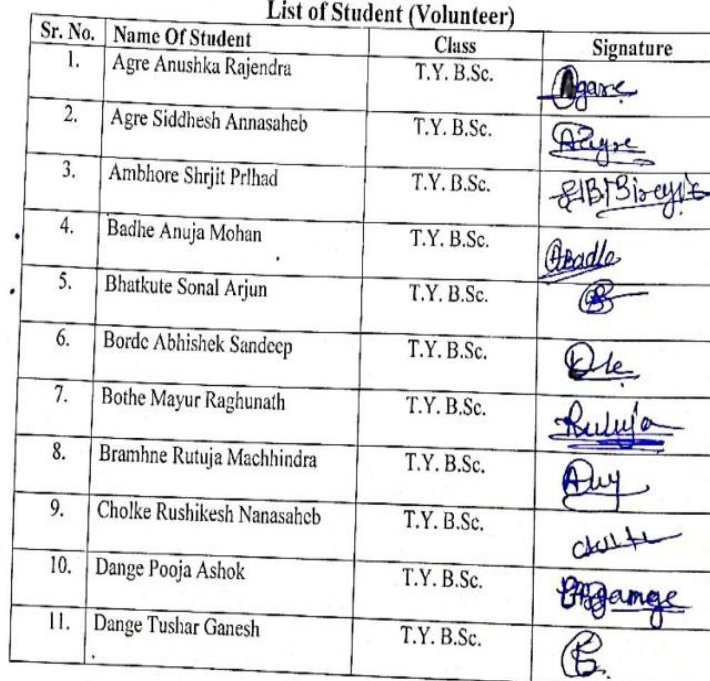 List of Student (Volunteer)
Sr. No. Name Of Student Class Signature
1. Agre Anushka Rajendra T.Y. B.Sc. Agare
2. Agre Siddhesh Annasaheb T.Y. B.Sc.
3. Ambhore Shrjit Prlhad T.Y. B.Sc.
4. Badhe Anuja Mohan T.Y. B.Sc.
5. Bhatkute Sonal Arjun T.Y. B.Sc.
6. Borde Abhishek Sandeep T.Y. B.Sc.
7. Bothe Mayur Raghunath T.Y. B.Sc. Rutuja
8. Bramhne Rutuja Machhindra T.Y. B.Sc.
9. Cholke Rushikesh Nanasaheb T.Y. B.Sc.
10. Dange Pooja Ashok T.Y. B.Sc.
11. Dange Tushar Ganesh T.Y. B.Sc.